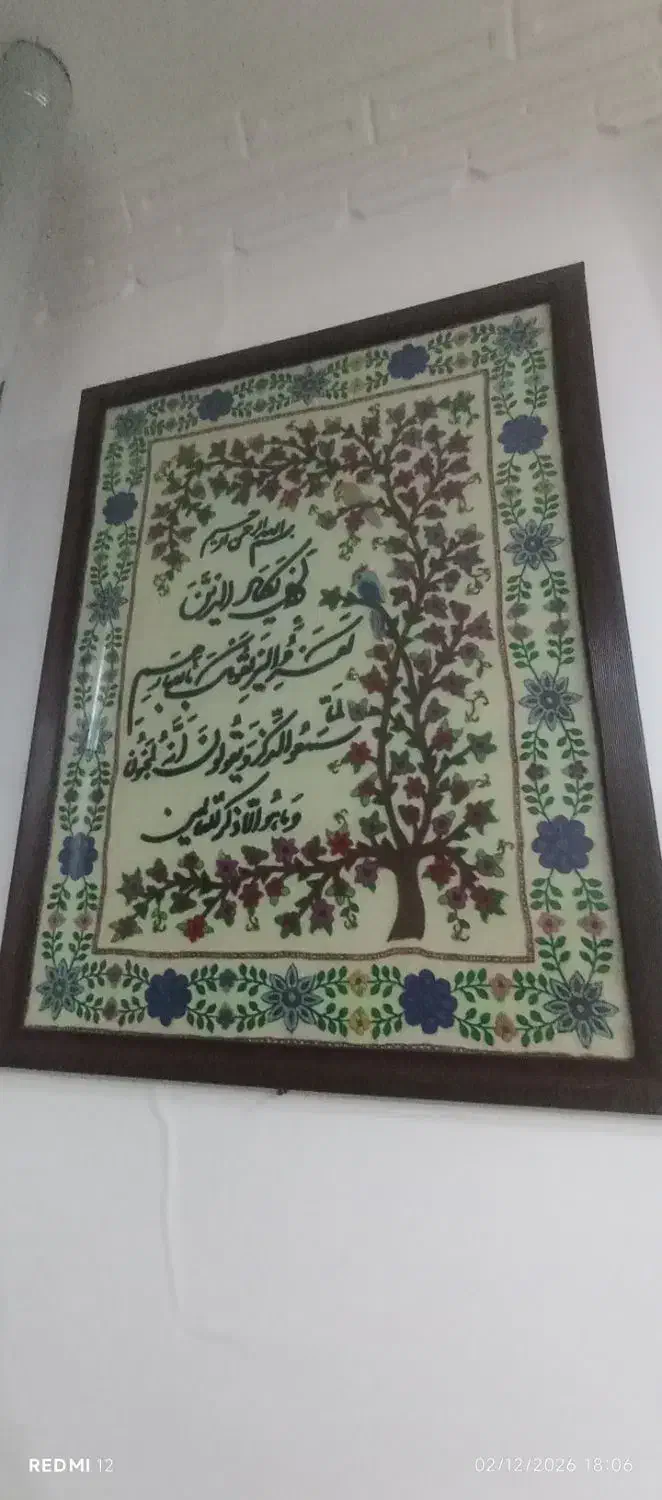 بسم الله الرحمن الرحیم
وَإِن یَکَادُ الَّذِینَ
کَفَرُوا لَیُزْلِقُونَکَ بِأَبْصَارِهِمْ
لَمَّا
سَمِعُوا الذِّکْرَ وَیَقُولُونَ إِنَّهُ لَمَجْنُونٌ
وَمَا هُوَ إِلَّا ذِکْرٌ لِّلْعَالَمِینَ
REDMI 12
02/12/2026 18:06